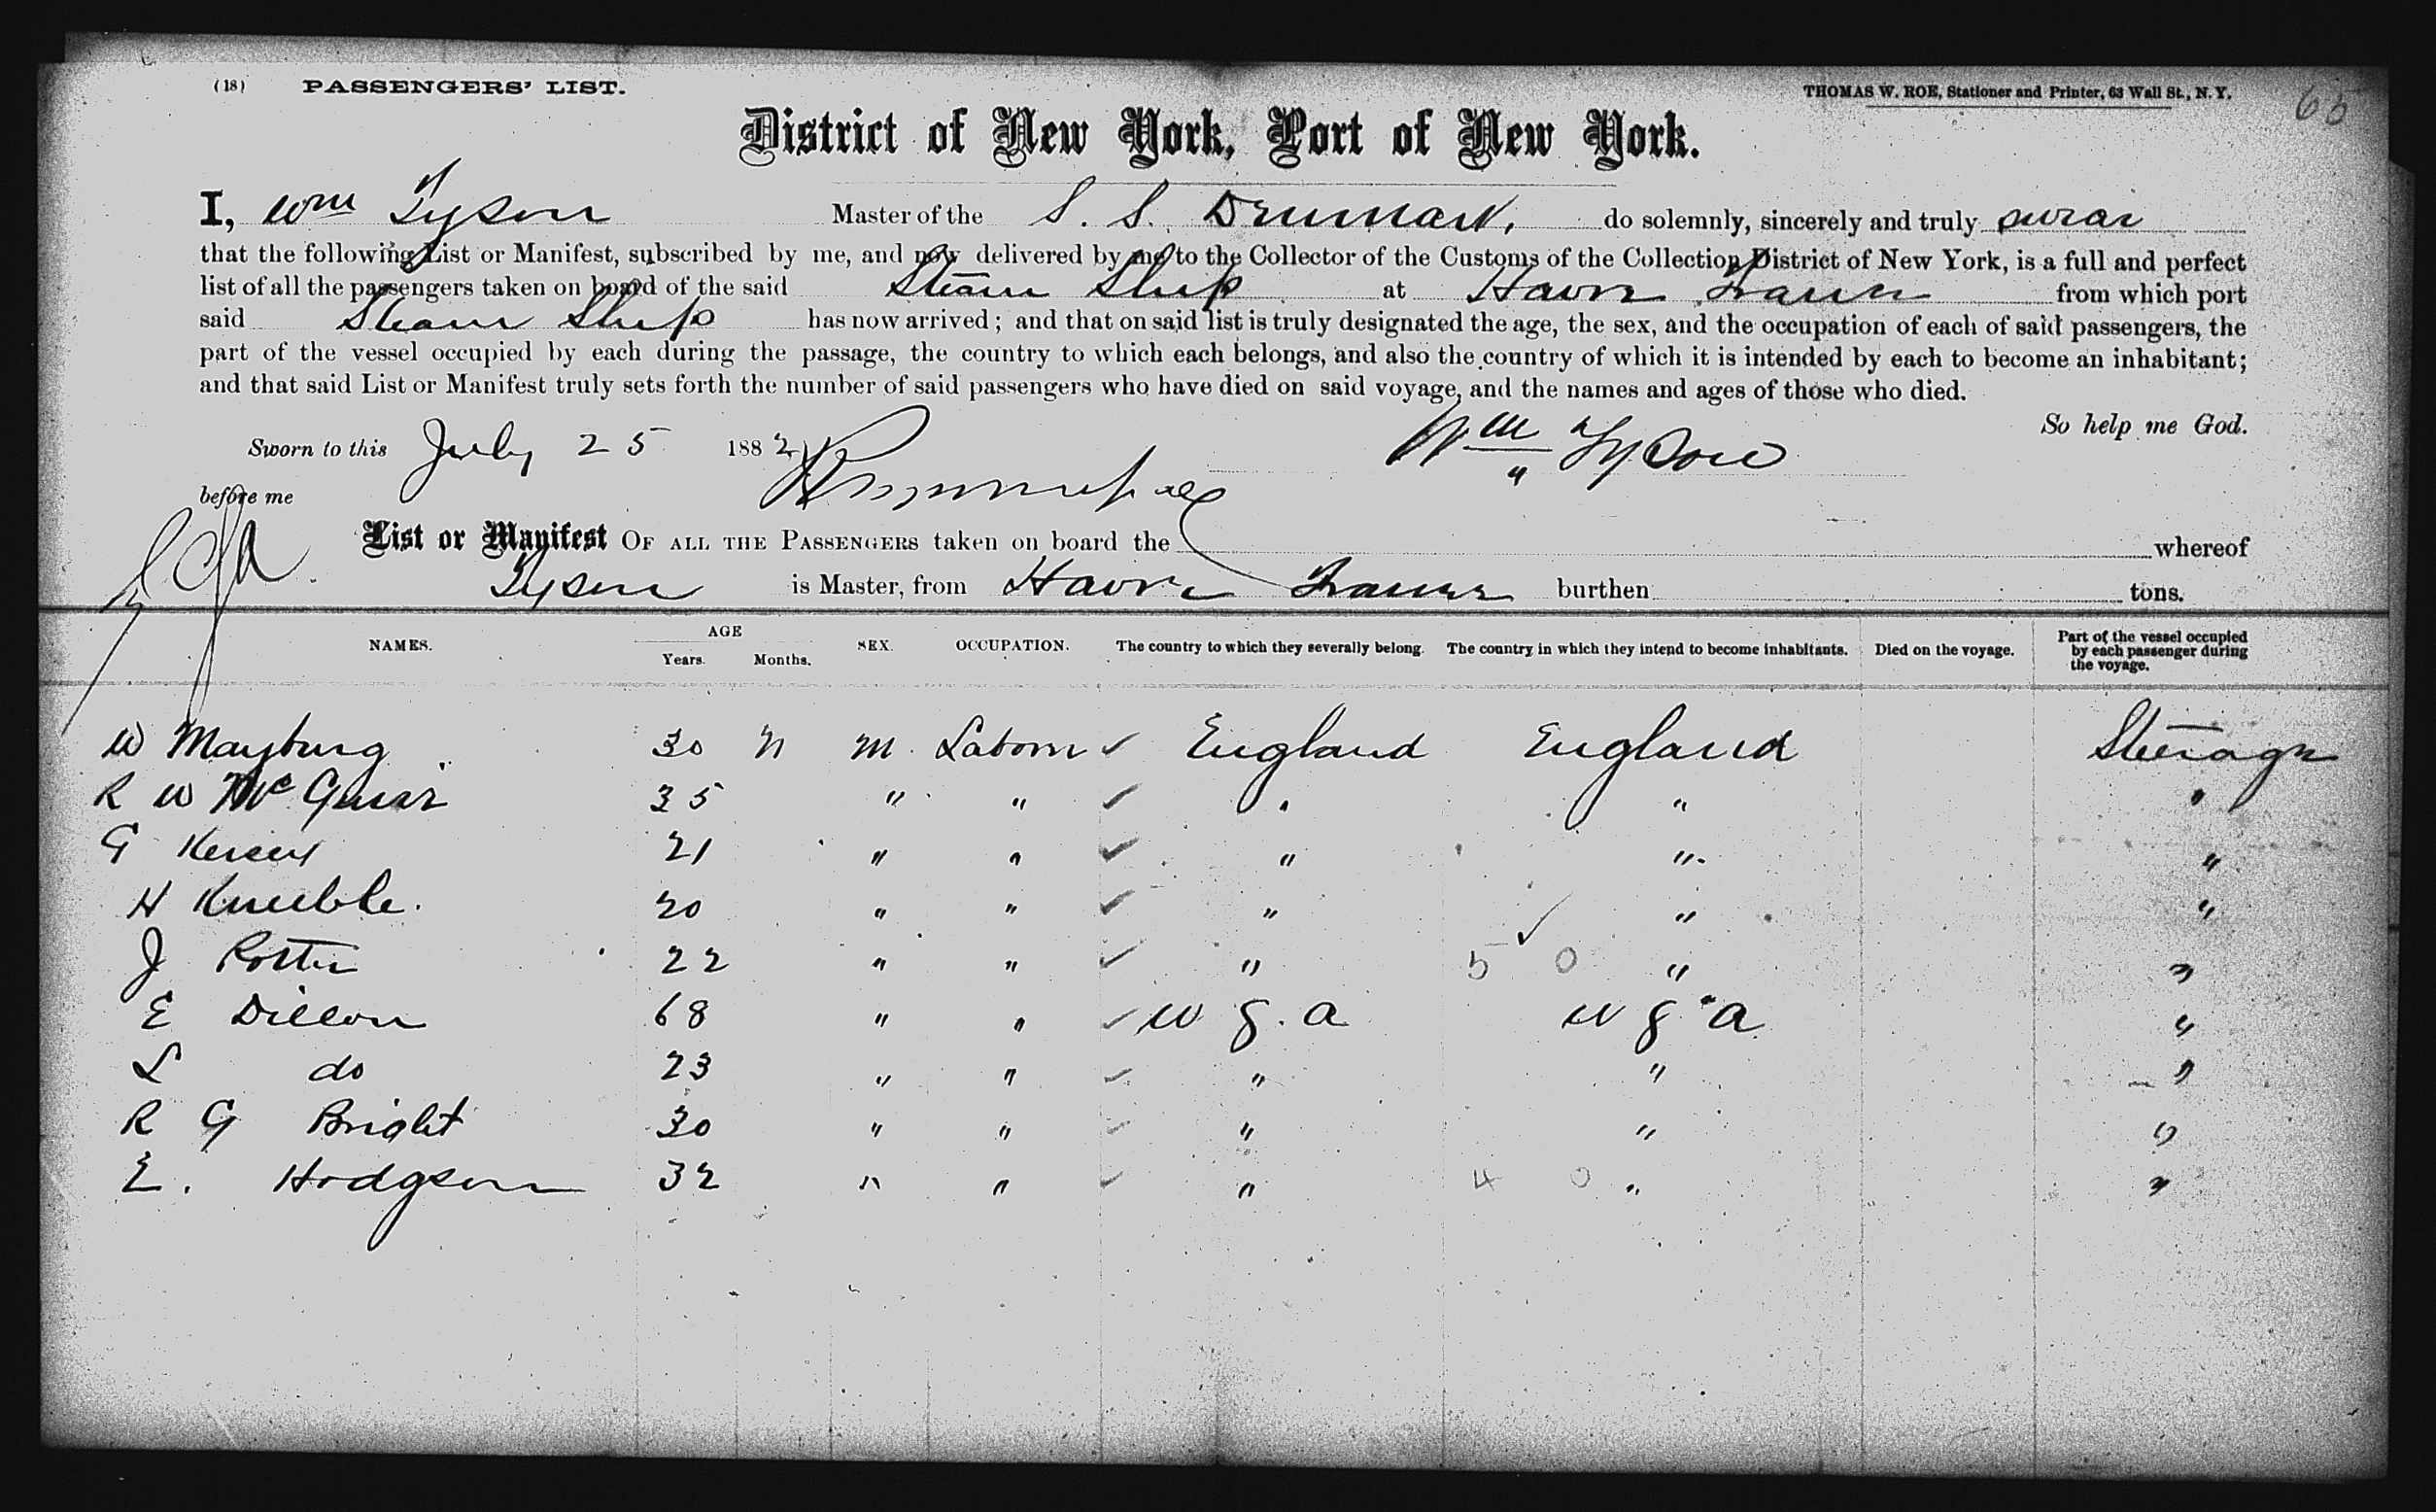 (18) PASSENGERS' LIST. THOMAS W. ROE, Stationer and Printer, 63 Wall St., N. Y. 65
District of New York, Port of New York.
I, Wm Tyson Master of the S. S. Denmark, do solemnly, sincerely and truly swear
that the following List or Manifest, subscribed by me, and now delivered by me to the Collector of the Customs of the Collection District of New York, is a full and perfect
list of all the passengers taken on board of the said Steam Ship at Havre France from which port
said Steam Ship has now arrived; and that on said list is truly designated the age, the sex, and the occupation of each of said passengers, the
part of the vessel occupied by each during the passage, the country to which each belongs, and also the country of which it is intended by each to become an inhabitant;
and that said List or Manifest truly sets forth the number of said passengers who have died on said voyage, and the names and ages of those who died.
So help me God.
Sworn to this July 25 1882 Wm Tyson
before me
List or Manifest OF ALL THE PASSENGERS taken on board the whereof
Tyson is Master, from Havre France burthen tons.
NAMES. AGE Years. Months. SEX. OCCUPATION. The country to which they severally belong. The country in which they intend to become inhabitants. Died on the voyage. Part of the vessel occupied by each passenger during the voyage.
W Mayburg 30 n m. Laborer ✓ England England Steerage
R W McGuier 35 " " ✓ " " "
G 21 " " ✓ " " "
H Knubble. 20 " " ✓ " " "
J Potter 22 " " ✓ " 5 ✓ 0 " "
E Dillon 68 " " ✓ U S. a U S. a "
L do 23 " " ✓ " " "
R G Bright 30 " " ✓ " " "
E. Hodgson 32 " " ✓ " 4 0 " "